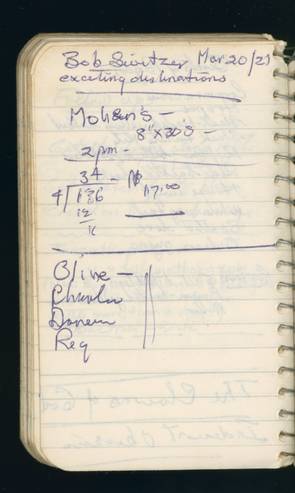 Bob Switzer Mar 20/21
exciting destinations
Mohsin's –
8" x 30's –
2 pm –
34 –
4 136
17.00
12
16
Olive –
Doreen
Reg
The Clowns of God